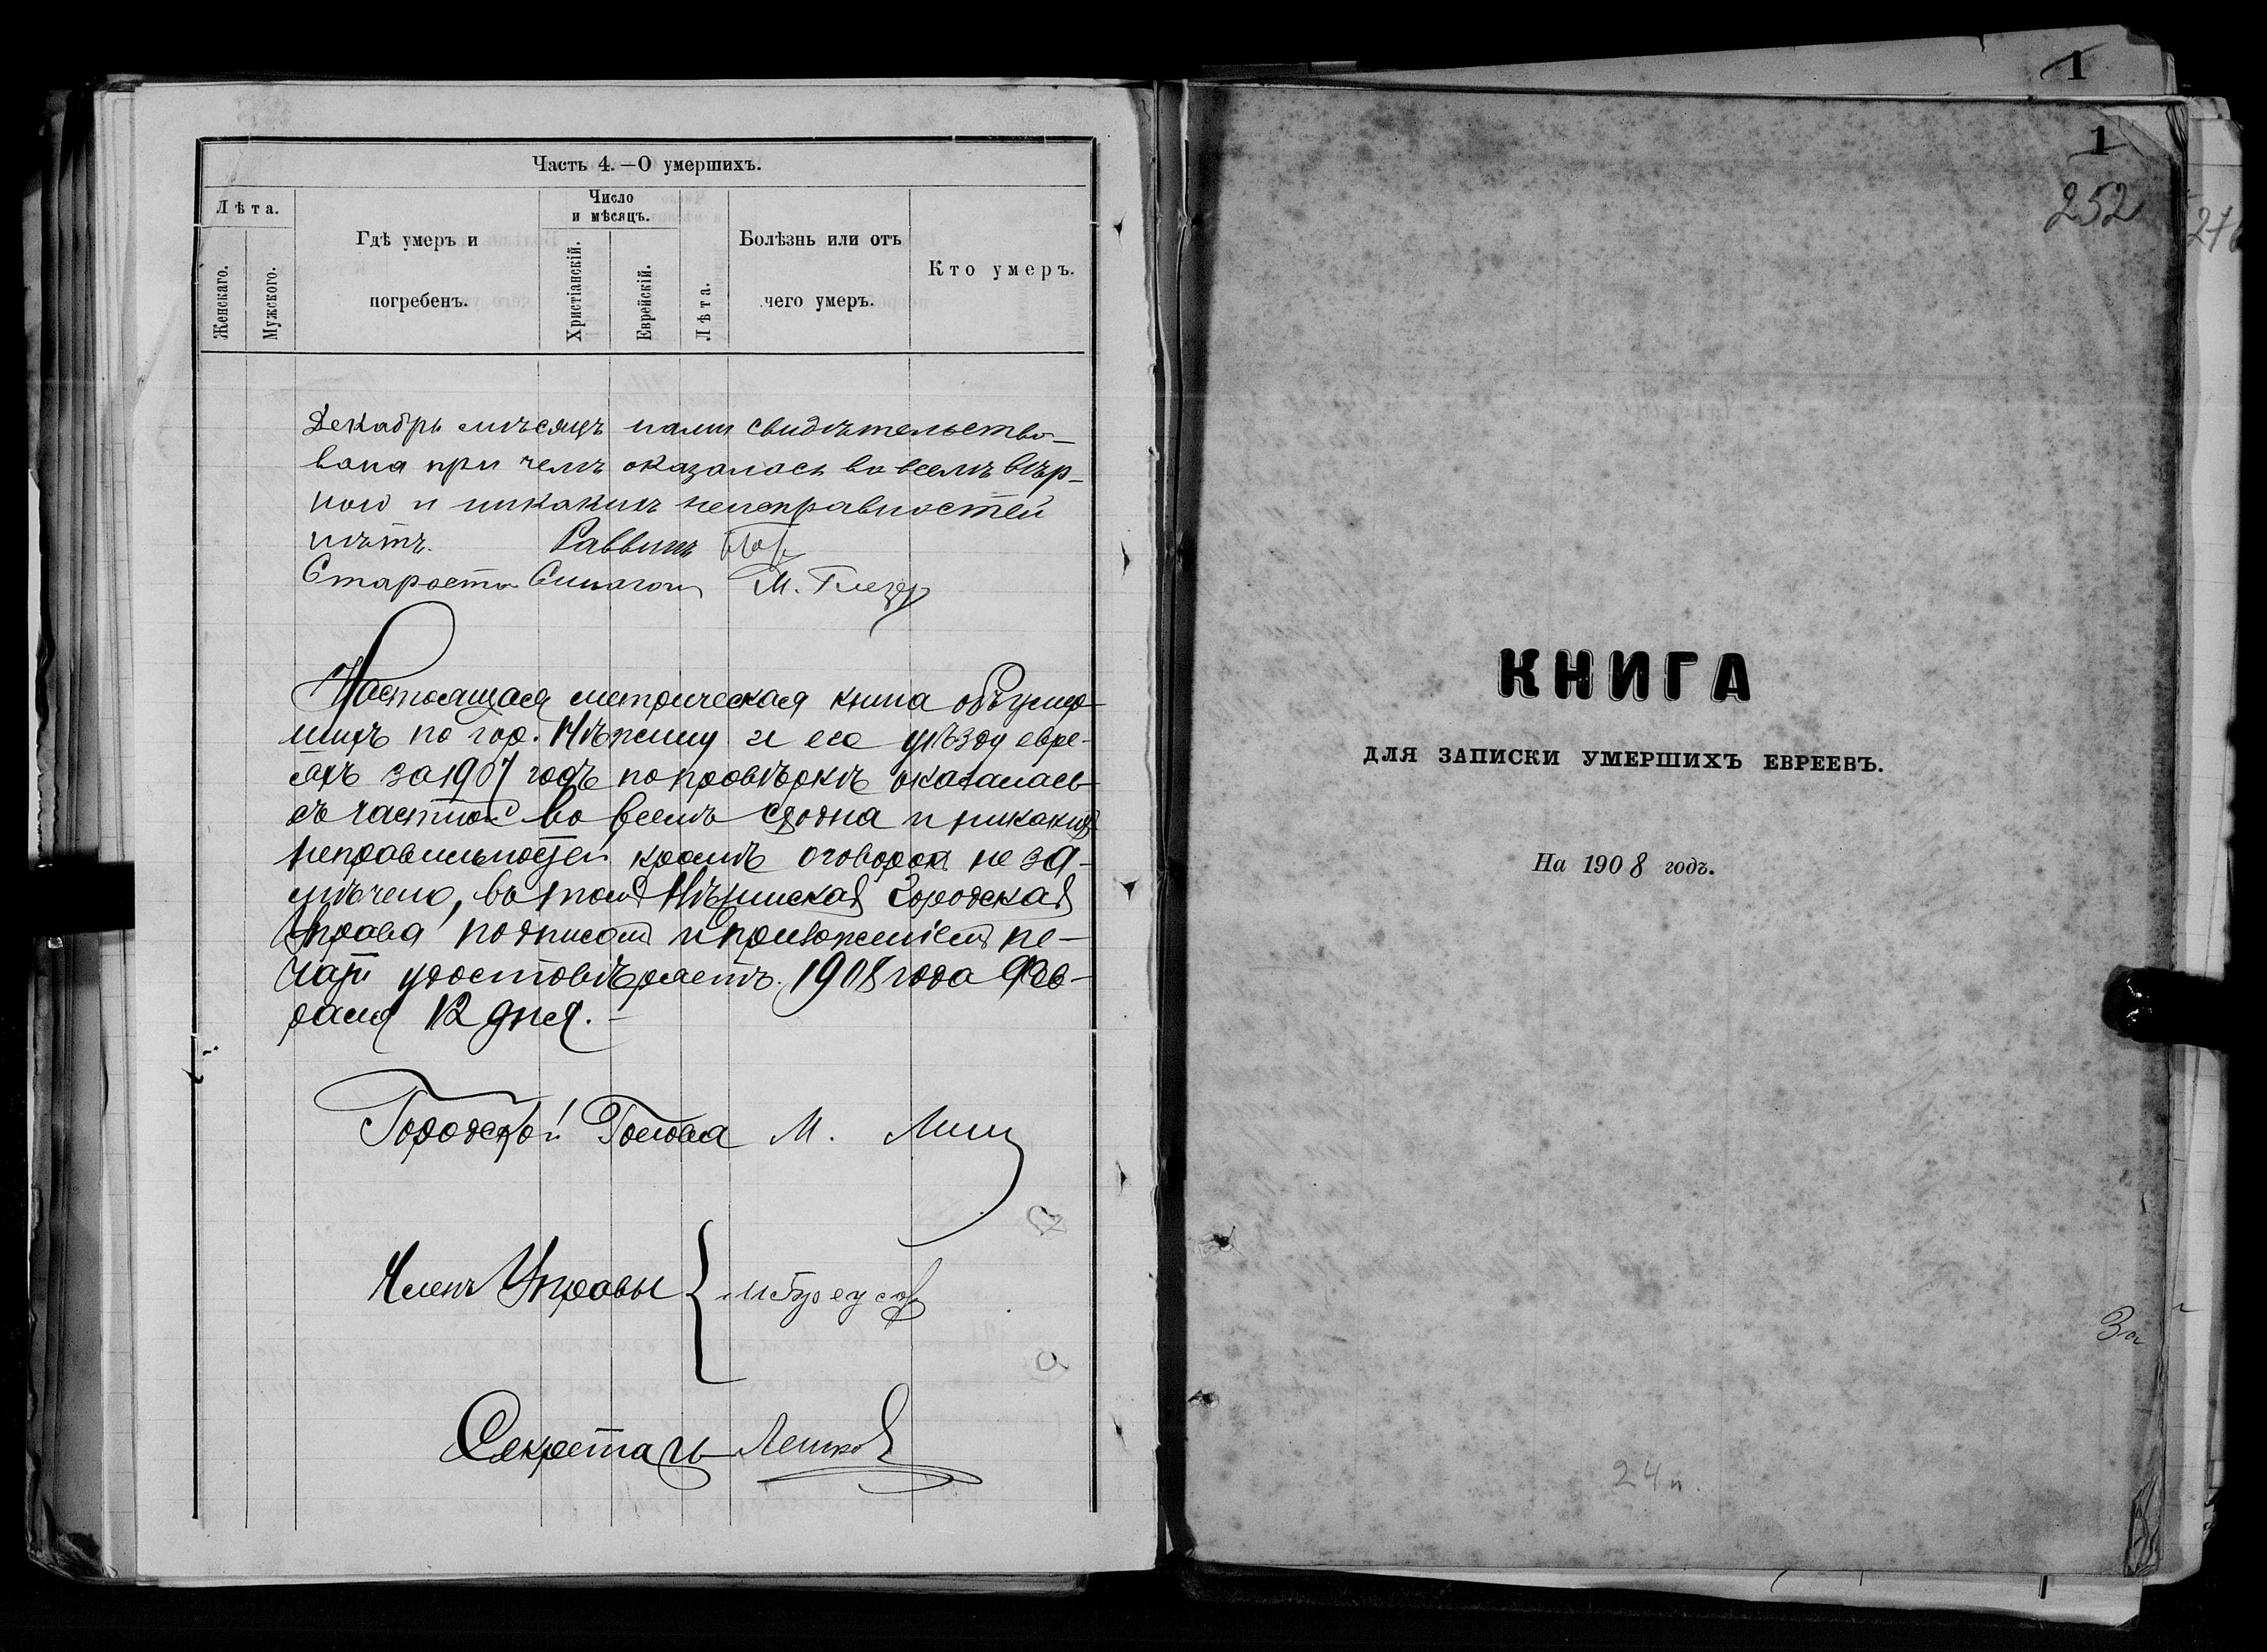 Часть 4.—О умершихъ.
Лѣта.
Женскаго.
Мужского.
Гдѣ умеръ и
погребенъ.
Число
и мѣсяцъ.
Христіанскій.
Еврейскій.
Лѣта.
Болѣзнь или отъ
чего умеръ.
Кто умеръ.
Декабрь мѣсяцъ нами свидѣтельство-
вана при чемъ оказалось во всемъ вѣр-
ною и никакихъ неисправностей
нѣтъ. Раввинъ
Староста Синагоги М. Глезер
Настоящая метрическая книга объ умер-
шихъ по гор. Нѣжину и его уѣзду евре-
яхъ за 1907 годъ по провѣркѣ оказалась
съ частною во всемъ сходна и никакихъ
неправильностей кромѣ оговорокъ не за-
мѣчено, въ томъ Нѣжинская Городская
Управа подписомъ и приложеніемъ пе-
чати удостовѣряетъ. 1908 года Фев-
раля 12 дня.—
Городской Голова М.
Членъ Управы {
Секретарь
1
1
252
КНИГА
ДЛЯ ЗАПИСКИ УМЕРШИХЪ ЕВРЕЕВЪ.
На 1908 годъ.
За